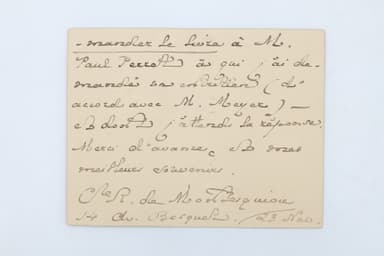 - mander le livre à M.
Paul Perret à qui j'ai de-
mandé un entretien (d'
accord avec M. Meyer) —
et dont j'attends la réponse.
Merci d'avance, et mes
meilleurs souvenirs.
Cte R. de Montesquiou
14 Av. Bosquet. 23 Nov.